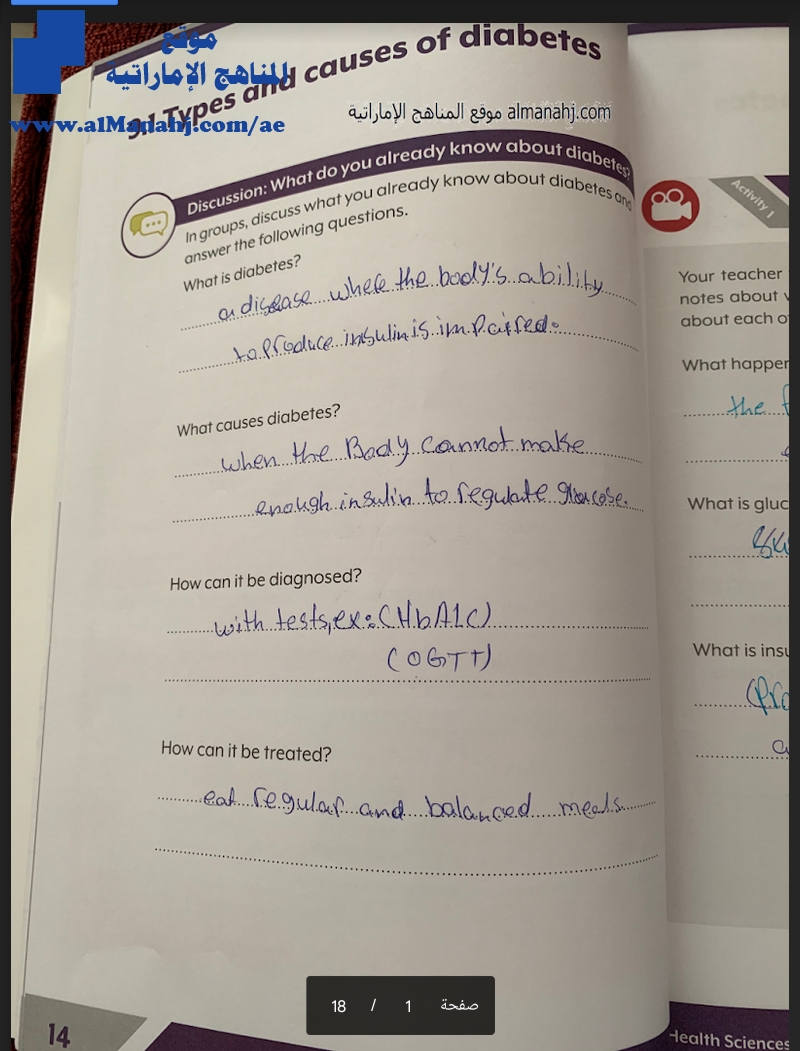 موقع
المناهج الإماراتية
www.alManahj.com/ae
3.1 Types and causes of diabetes
موقع المناهج الإماراتية almanahj.com
Discussion: What do you already know about diabetes?
In groups, discuss what you already know about diabetes and
answer the following questions.
What is diabetes?
a disease where the body's ability
to produce insulin is impaired.
What causes diabetes?
when the Body cannot make
enough insulin to regulate glucose.
How can it be diagnosed?
with tests, ex:(HbA1C)
(OGTT)
How can it be treated?
eat regular and balanced meals
14
Activity 1
Your teacher
notes about
about each o
What happen
the
What is gluc
What is insu
(Pro
Health Sciences
صفحة 1 / 18